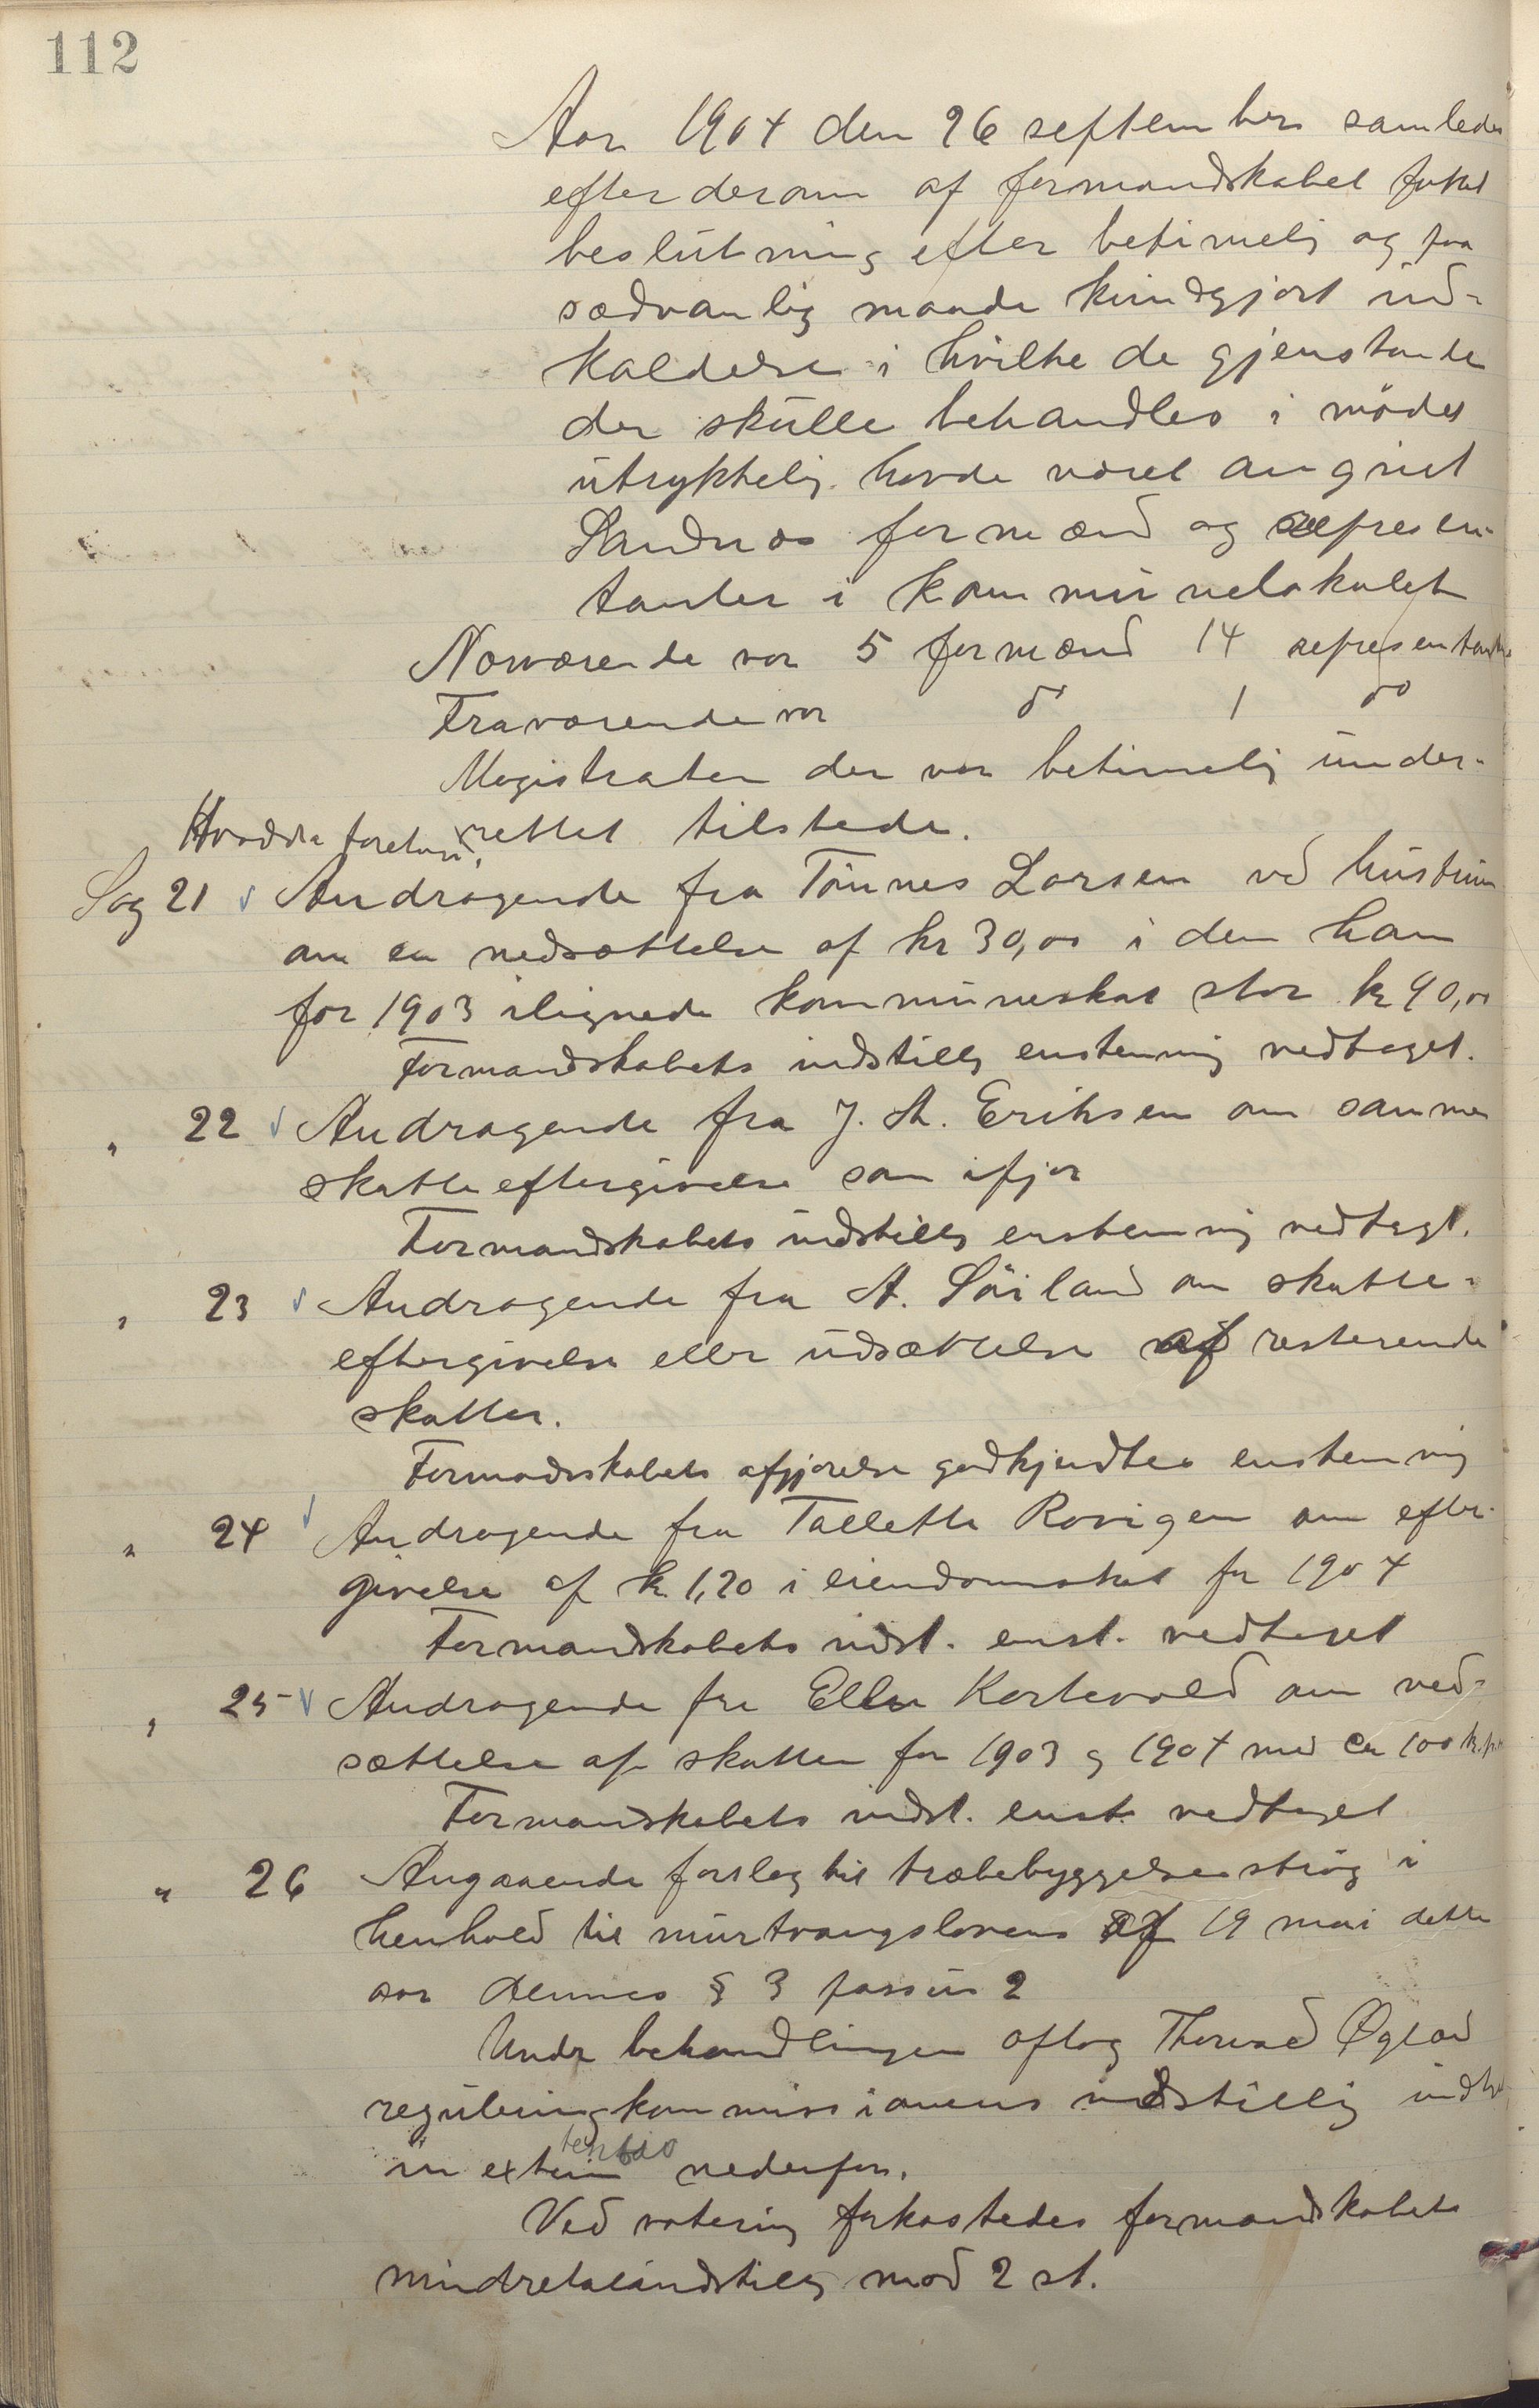 112
Aar 1904 den 26 september samledes
efter derom af formandskabet fattet
beslutning efter betimelig og paa
sædvanlig maade kundgjort ind-
kaldelse i hvilke de gjenstande
der skulle behandles i mödet
utrykkelig havde været angivet
Sandnæs formænd og represen-
tanter i kommunelokalet
Nærværende var 5 formænd 14 representanter
Fraværende var do 1 do
Magistraten der var betimelig under-
rettet tilstede.
Hvad da foretoges
Sag 21 Andragende fra Tönnes Larsen ved hustru
om en nedsættelse af kr 30,00 i den ham
for 1903 ilignede kommuneskat stor kr 90,00
Formandskabets indstillg enstemmig vedtaget.
" 22 Andragende fra J. A. Eriksen om samme
skatteeftergivelse som ifjor
Formandskabets indstillg enstemmig vedtagt.
" 23 Andragende fra A. Söiland om skatte-
eftergivelse eller udsættelse af resterende
skatter.
Formadsskabets afgjørelse godkjendtes enstemmig
" 24 Andragende fra Tallette Rovigen om efter-
givelse af kr 1,20 i eiendomsskat for 1904
Formandskabets indst. enst. vedtaget
" 25 Andragende fra Ellen Kortevold om ned-
sættelse af skatten for 1903 og 1904 med ca 100 kr.
Formandskabets indst. enst. vedtaget
" 26 Angaaende forslag til træbebyggelsesströg i
henhold til murtvangslovens af 19 mai dette
aar dennes § 3 passus 2
Under behandlingen oftog Thorvald Øglænd
reguleringskommissionens indstillig indtat
in extenso nedenfor.
Ved votering forkastedes formandskabets
mindretalsindstillg mod 2 st.